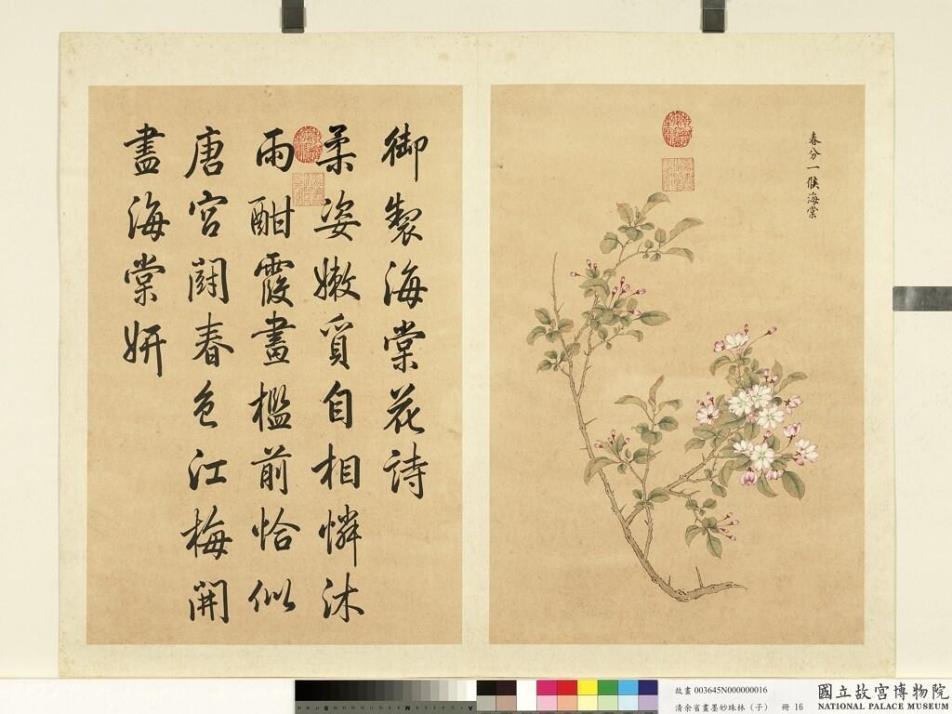 春分一候海棠
御製海棠花詩
柔姿嫩質自相憐沐
雨酣霞畫檻前恰似
唐宮闘春色江梅開
盡海棠妍
故畫 003645N000000016
清余省畫墨妙珠林（子） 冊 16
國立故宮博物院
NATIONAL PALACE MUSEUM